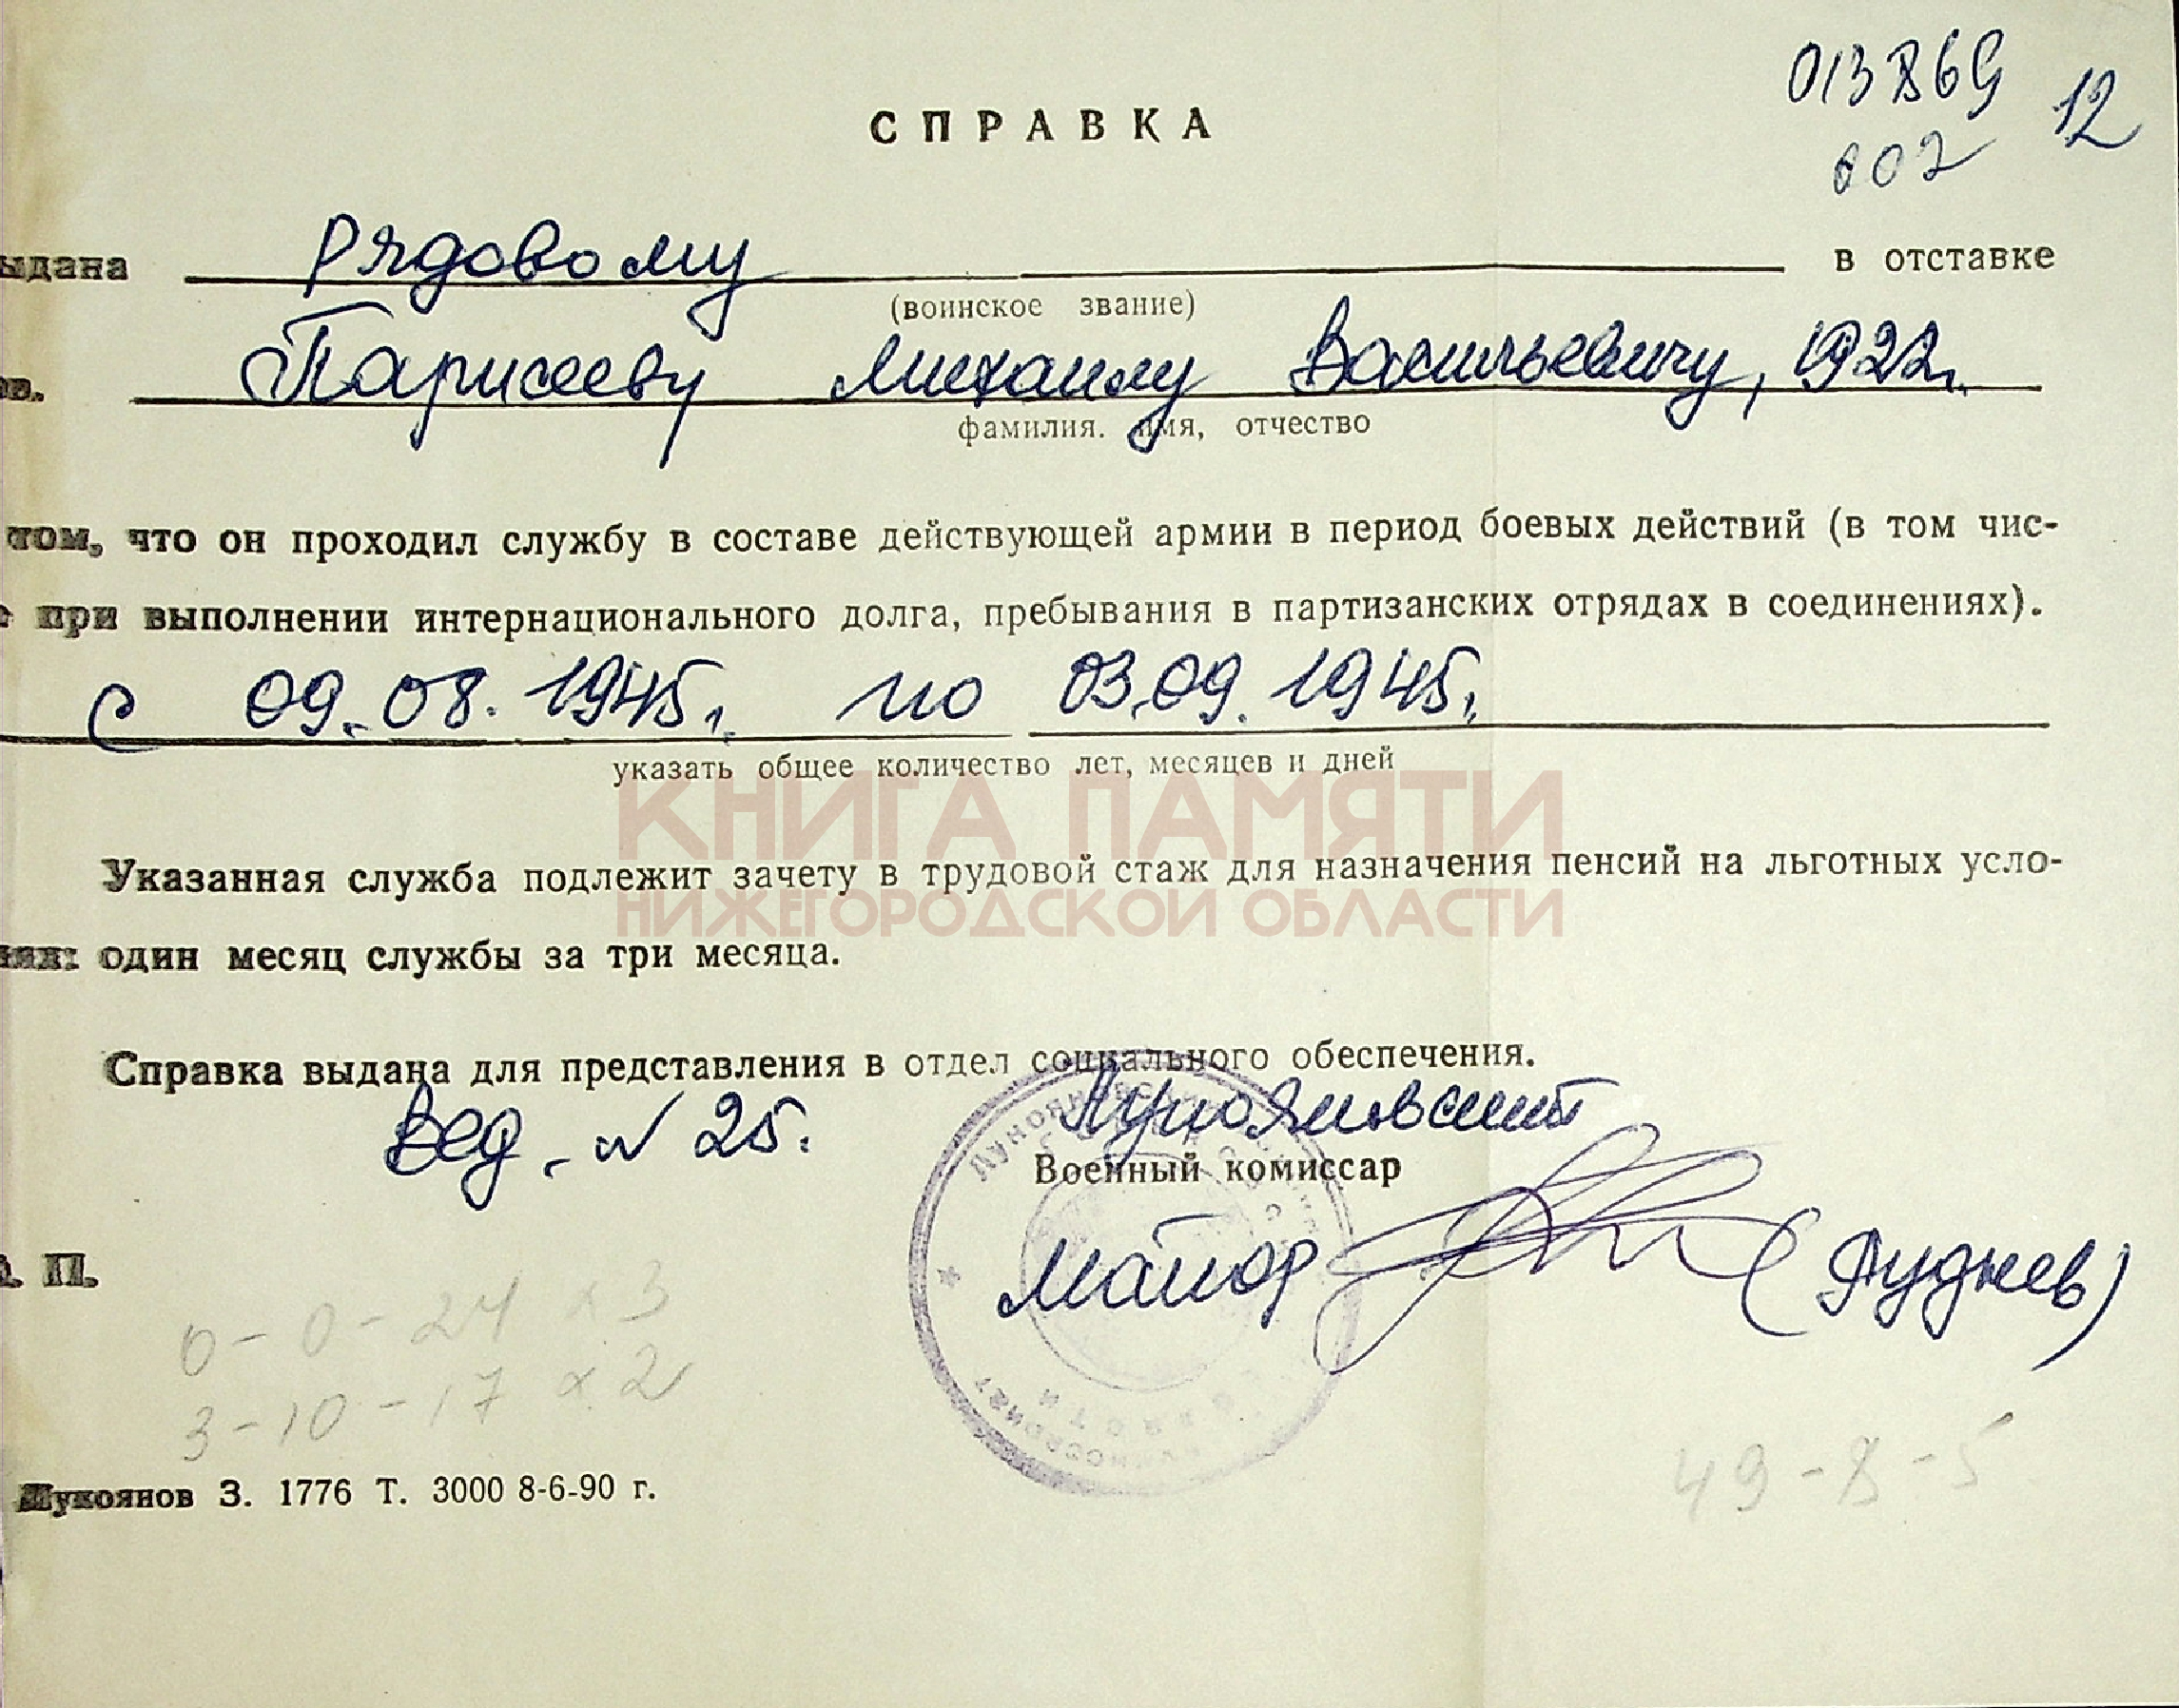 013869
002
12
СПРАВКА
ыдана Рядовому в отставке
(воинское звание)
ов. Парисееву Михаилу Васильевичу, 1922г.
фамилия. имя, отчество
том, что он проходил службу в составе действующей армии в период боевых действий (в том чис-
е при выполнении интернационального долга, пребывания в партизанских отрядах в соединениях).
с 09.08.1945г. по 03.09.1945г.
указать общее количество лет, месяцев и дней
КНИГА ПАМЯТИ
Указанная служба подлежит зачету в трудовой стаж для назначения пенсий на льготных усло-
НИЖЕГОРОДСКОЙ ОБЛАСТИ
виях: один месяц службы за три месяца.
Справка выдана для представления в отдел социального обеспечения.
Вед. № 25. Лукояновский
Военный комиссар
майор (Руднев)
. П.
0-0-24 х 3
3-10-17 х 2
49-8-5
Лукоянов З. 1776 Т. 3000 8-6-90 г.